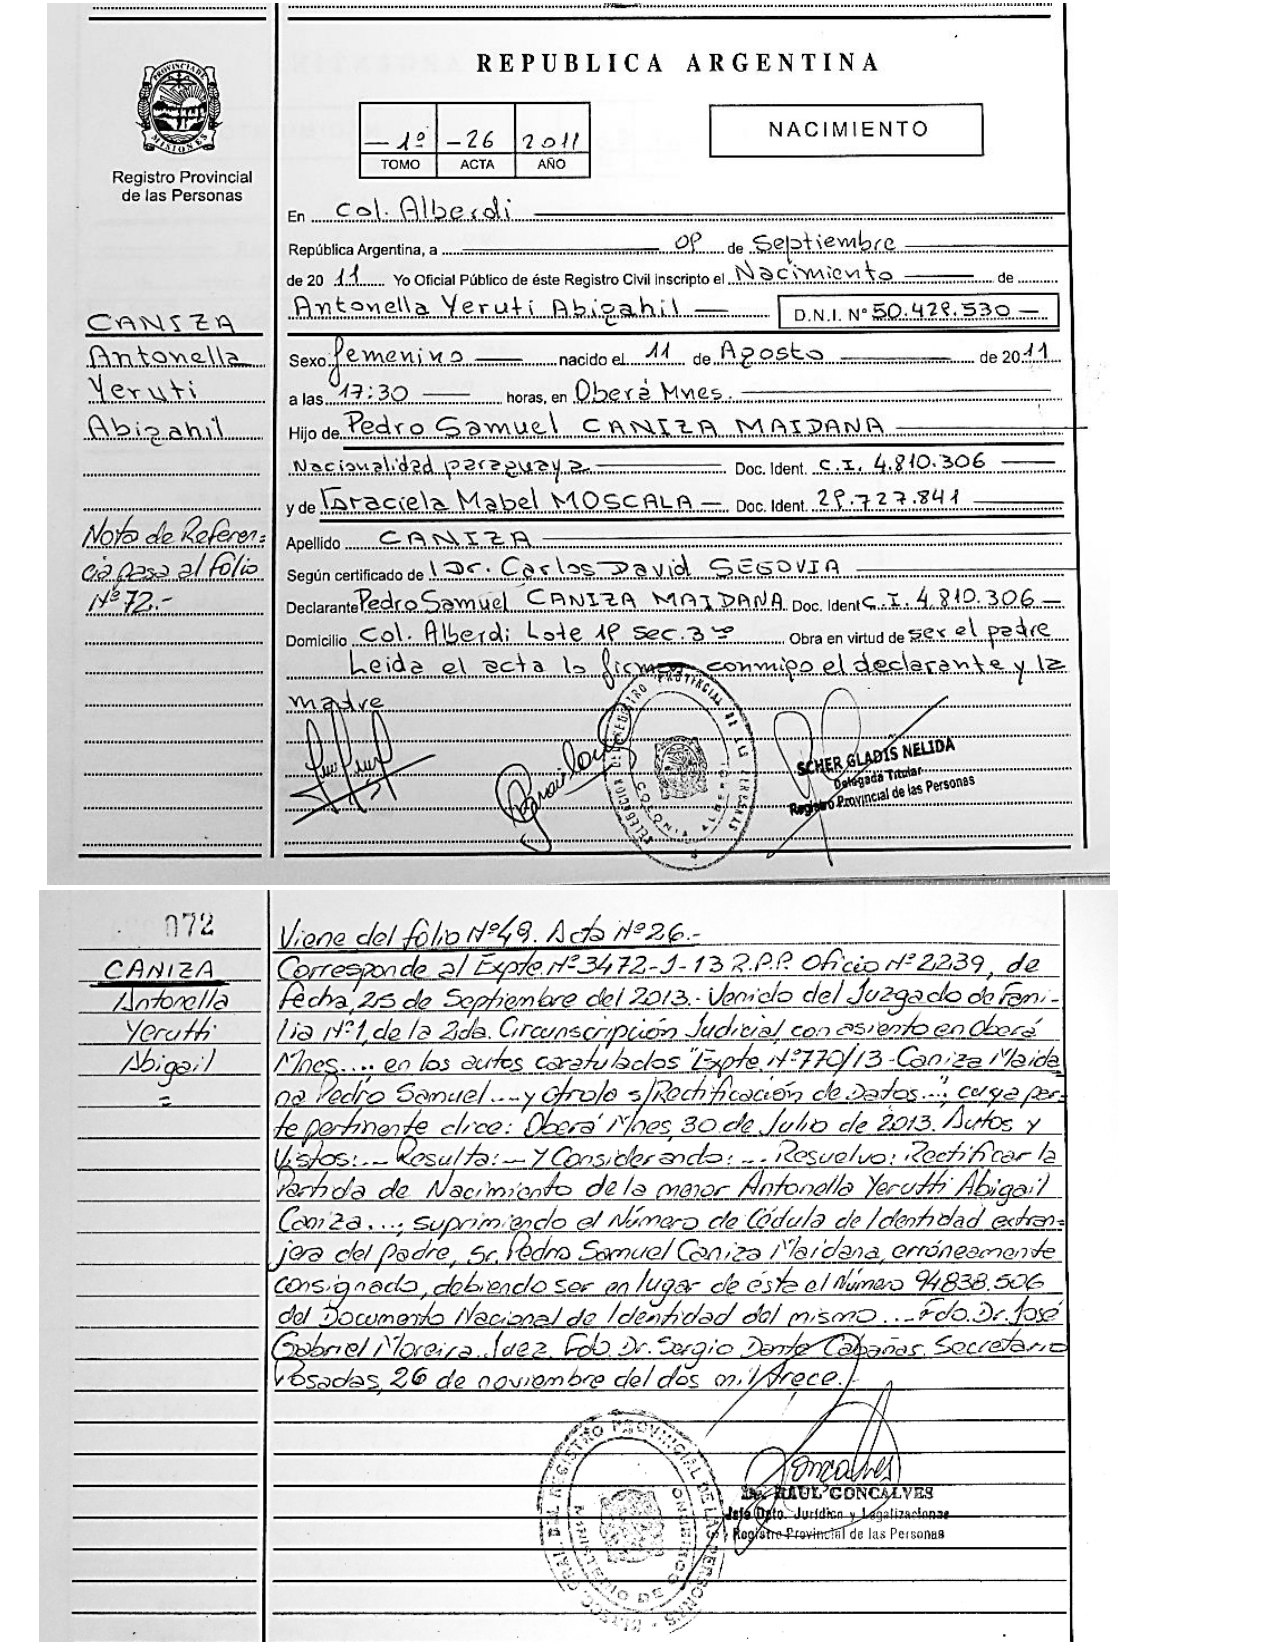 REPUBLICA ARGENTINA
PROVINCIA DE
MISIONES
Registro Provincial
de las Personas
— 1º — 26 2011
TOMO ACTA AÑO
NACIMIENTO
En Col. Alberdi
República Argentina, a 09 de Septiembre
de 20 11 Yo Oficial Público de éste Registro Civil inscripto el Nacimiento de
Antonella Yeruti Abigahil — D.N.I. Nº 50.429.530 —
Sexo femenino nacido el 11 de Agosto de 2011
a las 17:30 horas, en Oberá Mnes.
Hijo de Pedro Samuel CANIZA MAIDANA
Nacionalidad paraguaya Doc. Ident. C.I. 4.810.306
y de Graciela Mabel MOSCALA — Doc. Ident. 29.727.841
Apellido CANIZA
Según certificado de Dr. Carlos David SEGOVIA
Declarante Pedro Samuel CANIZA MAIDANA Doc. Ident C.I. 4.810.306 —
Domicilio Col. Alberdi Lote 19 sec. 3 Obra en virtud de ser el padre
Leida el acta la conmigo el declarante y la
madre
CANIZA
Antonella
Yeruti
Abigahil
Nota de Referen=
cia pasa al folio
Nº 72.-
REGISTRO PROVINCIAL DE LAS PERSONAS
SCHER GLADIS NELIDA
Delegada Titular
Registro Provincial de las Personas
072
CANIZA
Antonella
Yerutti
Abigail
=
Viene del folio Nº 49. Acta Nº 26.-
Corresponde al Expte. Nº 3472-J-13 R.P.P. Oficio Nº 2239, de
fecha, 25 de Septiembre del 2013.- Venido del Juzgado de Fami-
lia Nº 1, de la 2da. Circunscripción Judicial, con asiento en Oberá
Mnes.... en los autos caratulados "Expte. Nº 770/13- Caniza Maida
na Pedro Samuel.... y otro/a s/Rectificación de Datos...", cuya par-
te pertinente dice: Oberá Mnes, 30 de Julio de 2013. Autos y
Vistos:... Resulta:— Y Considerando:... Resuelvo: Rectificar la
Partida de Nacimiento de la menor Antonella Yerutti Abigail
Caniza...., suprimiendo el Número de Cédula de Identidad extran=
jera del padre, Sr. Pedro Samuel Caniza Maidana, erróneamente
consignado, debiendo ser en lugar de éste el Número 94838.506
del Documento Nacional de Identidad del mismo... Fdo. Dr. José
Gabriel Moreira. Juez. Fdo. Dr. Sergio Dante Cabañas. Secretario
Posadas, 26 de noviembre del dos mil trece.
REGISTRO PROVINCIAL DE LAS PERSONAS
Goncalves
Dr. RAUL GONCALVES
Jefe Dpto. Jurídico y Legalizaciones
Registro Provincial de las Personas